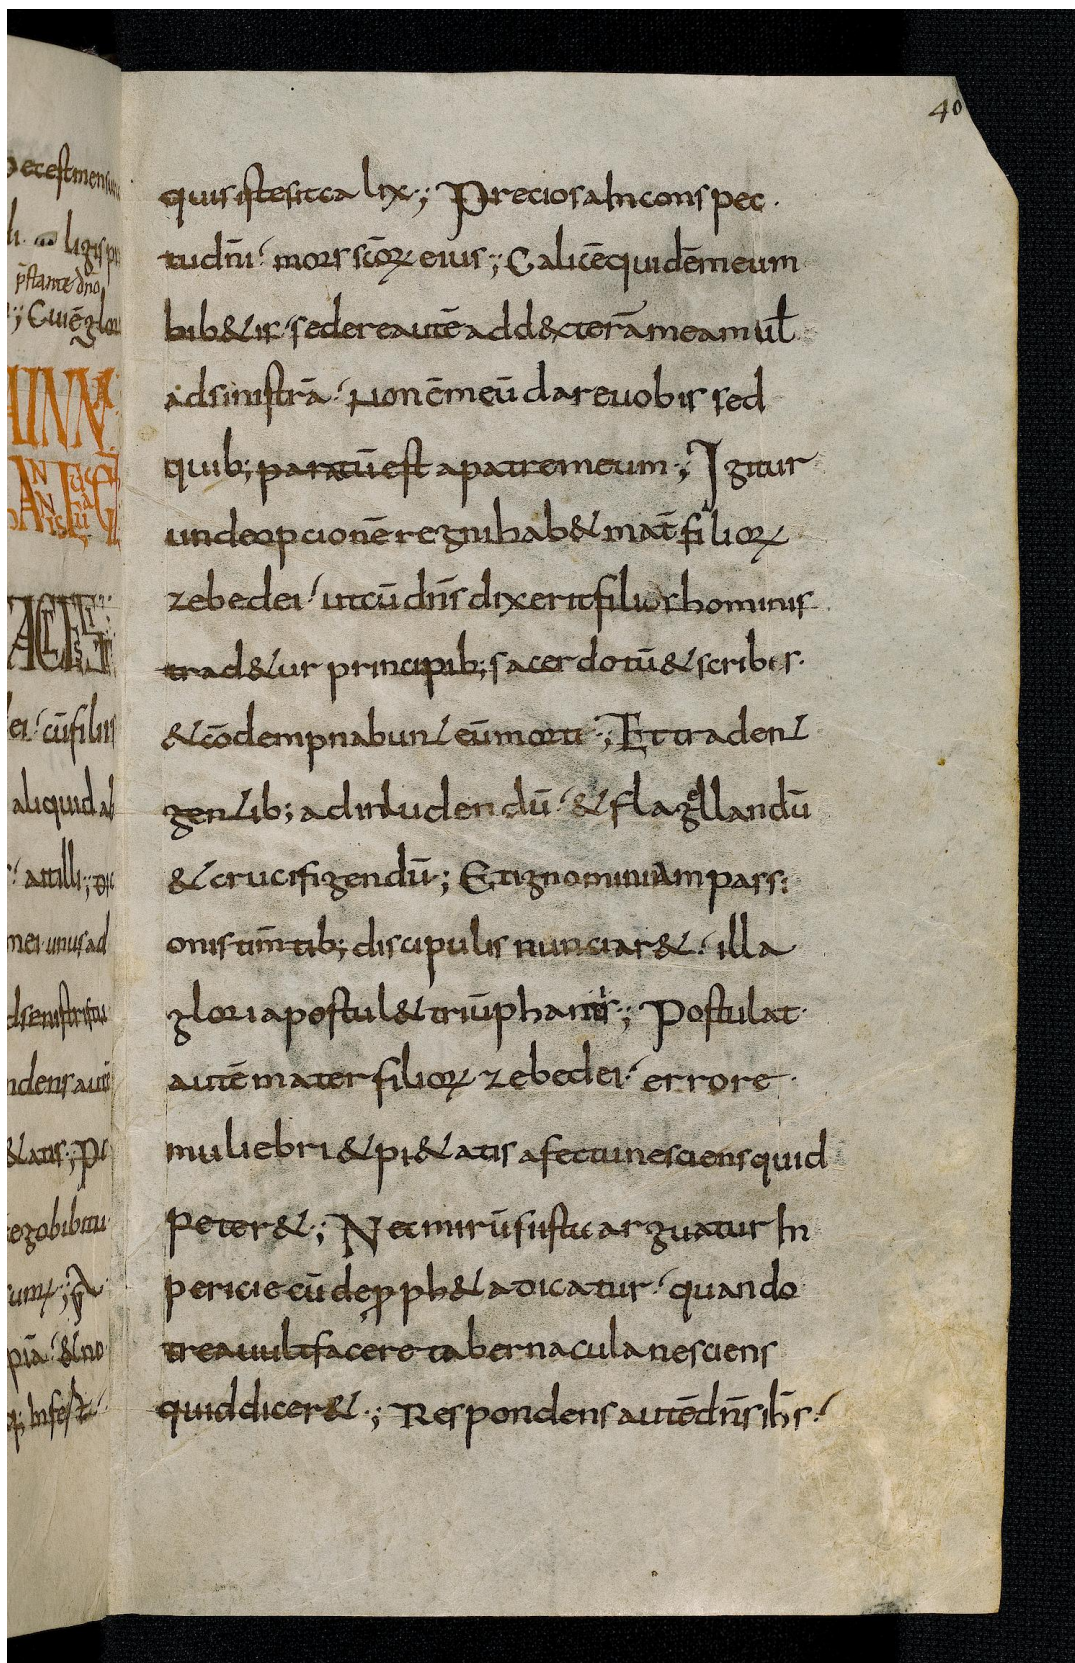 40
quis iste sit calix·; Preciosa In conspec·
tu dn̄i· mors sc̄oꝝ eius·; Calicē quidē meum
bib&is· sedere autē ad d&xterā meam ul̄
ad sinistrā· Non ē meū dare uobis sed
quib; paratū est a patre meum·; Igitur
unde opcionē regni hab& mat̄ filioꝝ
zebedei· ut cū dn̄s dixerit filius hominis
trad&ur principib; sacerdotū & scribis·
& cōdempnabunt eū morti·; Et tradent
gentib; ad inludendū· & flagellandū
& crucifigendū·; Et ignominiam passi
onis tim̄tib; discipulis nunciar&· illa
gloria postul& triūphantis·; Postulat·
autē mater filioꝝ zebedei· errore·
muliebri & pi&atis afectu nesciens quid
peter&·; Nec mirū si ista arguatur In
pericie cū de p̱ ph&a dicatur· quando
trea uult facere tabernacula nesciens
quid dicer&·; Respondens autē dn̄s ih̄s·